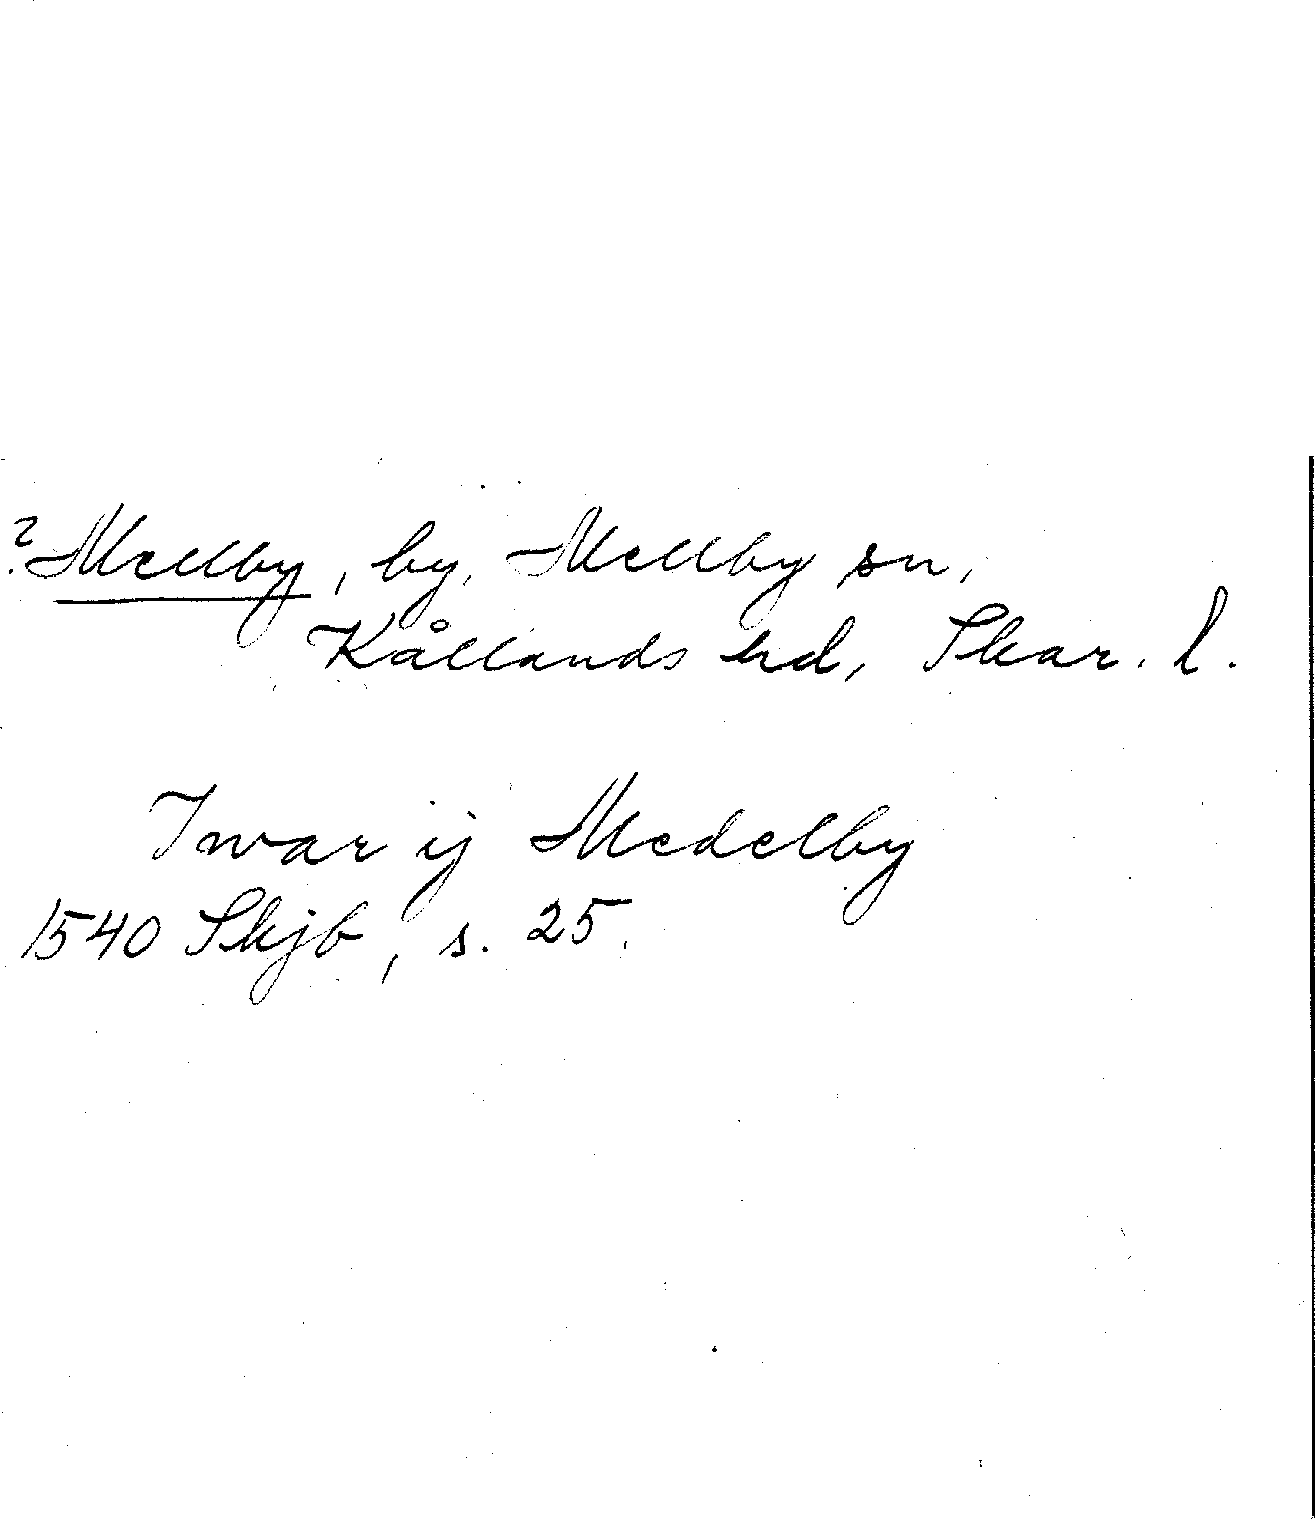 ? Mellby, by, Mellby sn,
Kållands hd, Skar. l.
Iwar ij Medelby
1540 Skjb, s. 25.